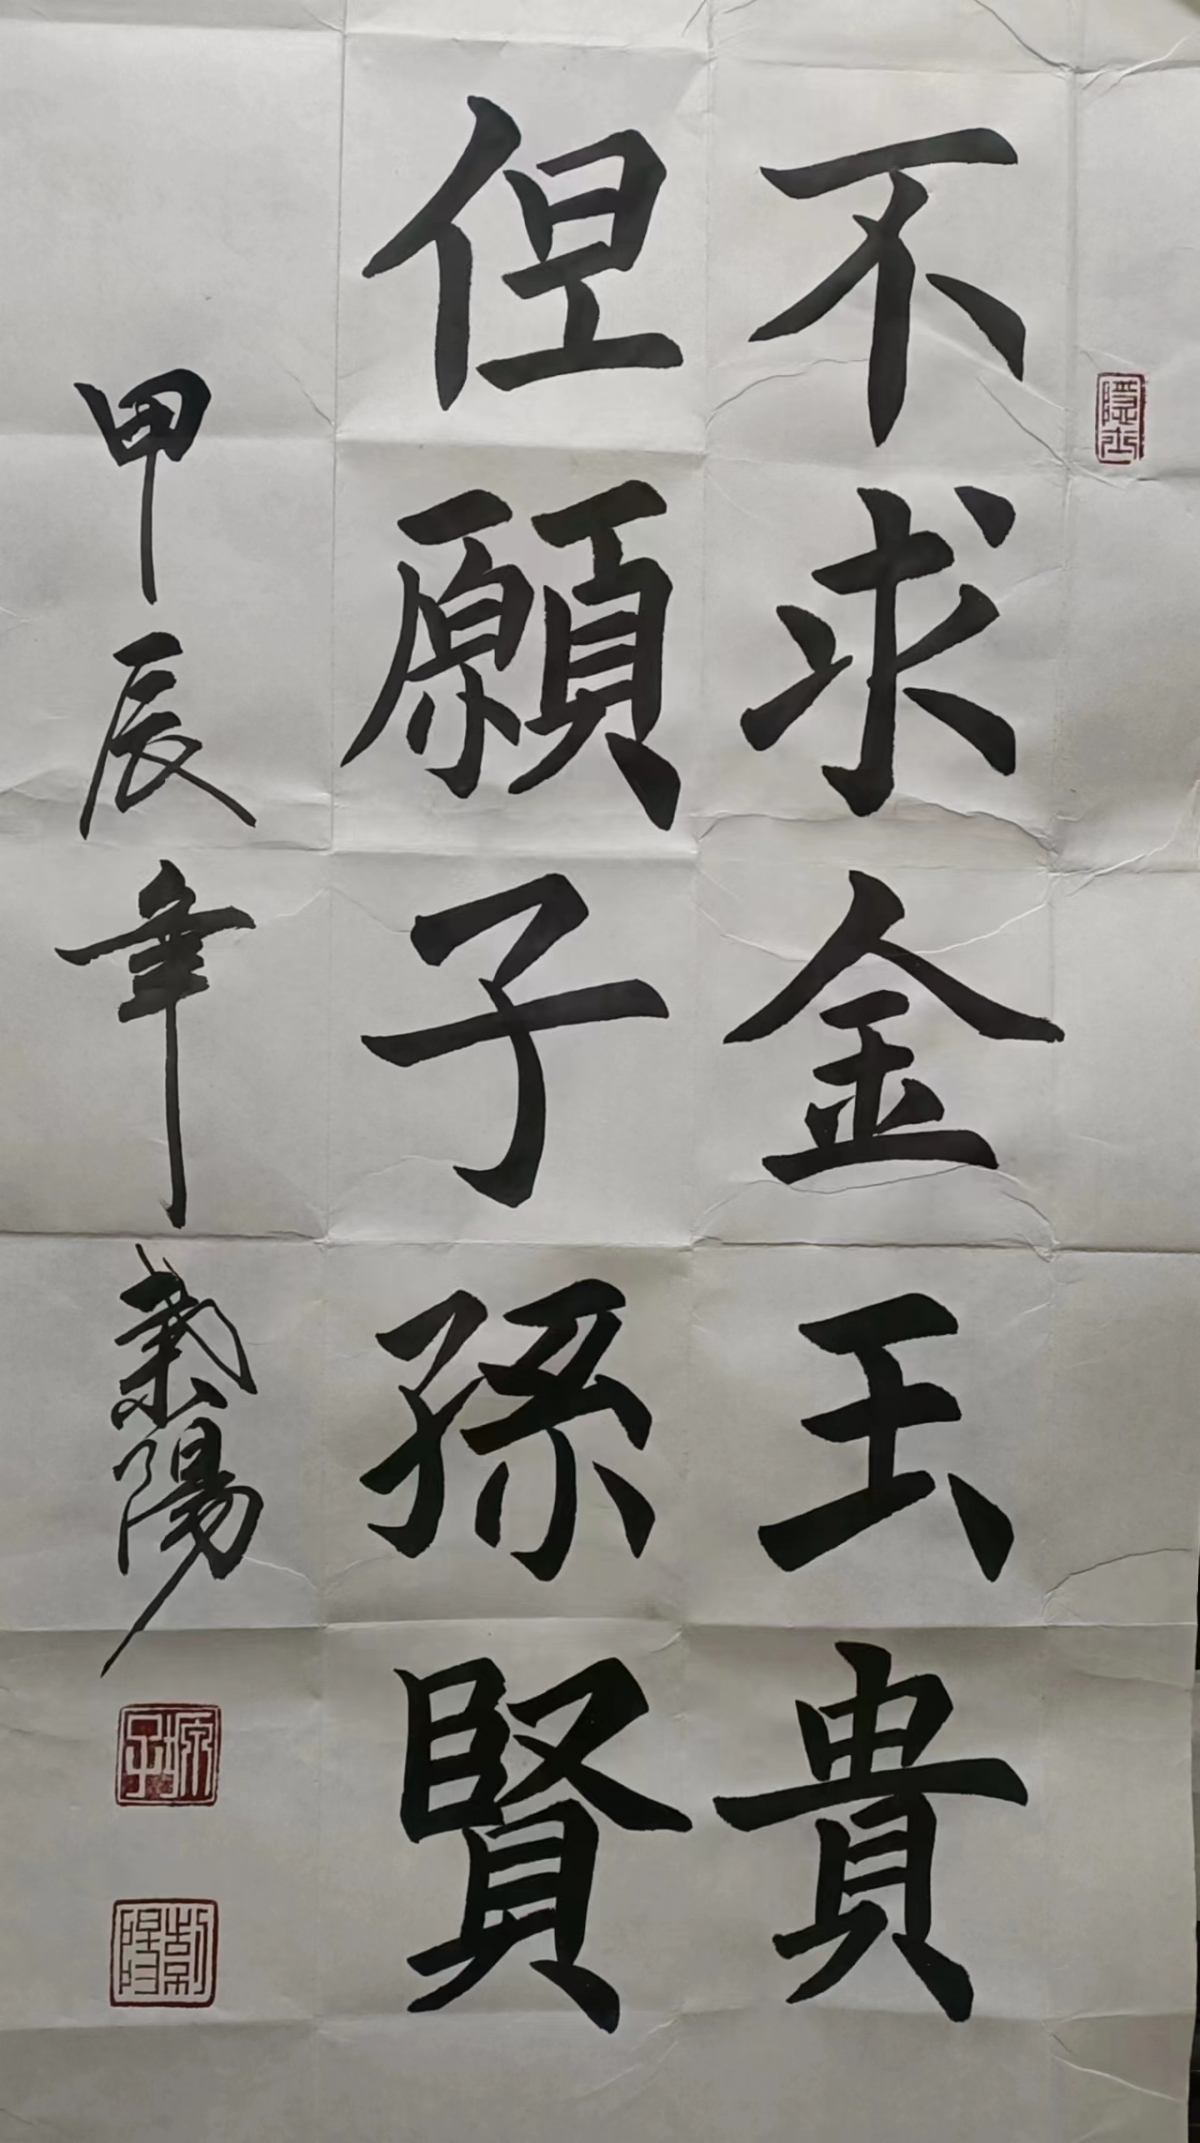 不求金玉貴
但願子孫賢
甲辰年紫陽